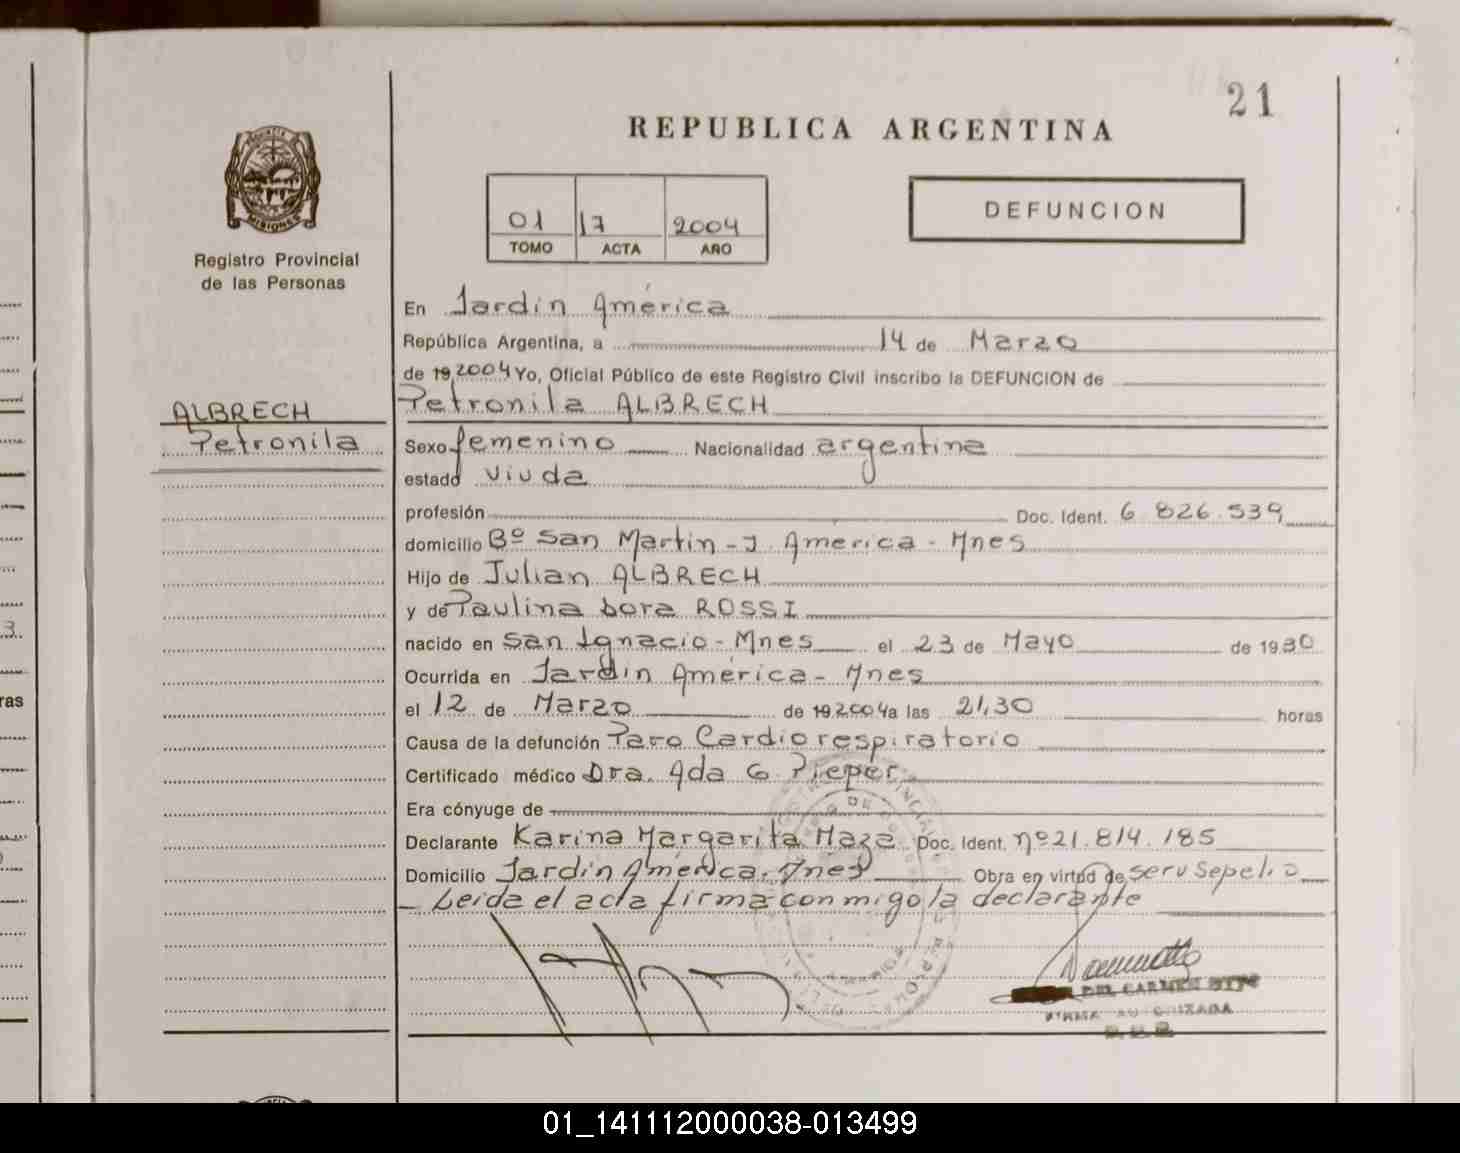 21
REPUBLICA ARGENTINA
01 17 2004
TOMO ACTA AÑO
DEFUNCION
MISIONES
Registro Provincial
de las Personas
ALBRECH
Petronila
En Jardín América
República Argentina, a 14 de Marzo
de 19 2004 Yo, Oficial Público de este Registro Civil inscribo la DEFUNCION de
Petronila ALBRECH
Sexo femenino Nacionalidad argentina
estado viuda
profesión Doc. Ident. 6 826.539
domicilio Bº San Martin - J. America - Mnes
Hijo de Julian ALBRECH
y de Paulina Dora ROSSI
nacido en San Ignacio - Mnes el 23 de Mayo de 1930
Ocurrida en Jardín América - Mnes
el 12 de Marzo de 19 2004 a las 21,30 horas
Causa de la defunción Paro Cardiorespiratorio
Certificado médico Dra. Ada G. Pieper
Era cónyuge de
Declarante Karina Margarita Maza Doc. Ident. nº 21.814.185
Domicilio Jardín América. Mnes Obra en virtud de serv Sepelio
Leida el acta firma conmigo la declarante
DEL CARMEN
FIRMA AUTORIZADA
ras
3.
01_141112000038-013499